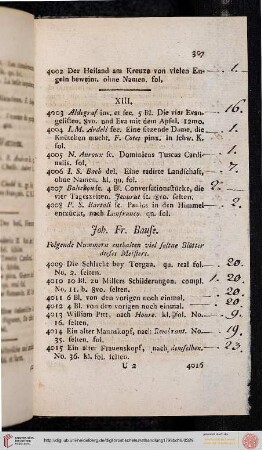 307
4002 Der Heiland am Kreuze von vielen Engeln beweint. ohne Namen. fol. 1.
XIII.
4003 Aldegraf inv. et fec. 5 Bl. Die vier Evangelisten, 8vo. und Eva mit dem Apfel. 12mo. 16.
4004 I. M. Ardell fec. Eine sitzende Dame, die Knötchen macht, F. Cotes pinx. in schw. K. fol. 1.
4005 N. Auroux sc. Dominicus Tuscus Cardinalis. fol. 1.
4006 I. S. Bach del. Eine radirte Landschaft, ohne Namen. kl. qu. fol. 7.
4007 4 Bl. Conversationsstücke, die vier Tageszeiten. sc. gros. selten. 2.
4008 F. S. Bartoli sc. Paulus in den Himmel entzückt, nach Lanfranco. qu. fol. 2.
Joh. Fr. Bause.
Folgende Nummern enthalten viel seltne Blätter dieses Meisters.
4009 Die Schlacht bey Torgau. qu. real fol. No. 2. selten. 20.
4010 10 Bl. zu Millers Schilderungen. compl. No. 11. b. 8vo. selten. 1. 20.
4011 6 Bl. von den vorigen noch einmal.
4012 4 Bl. von den vorigen noch einmal.
4013 William Pitt, nach Houre. kl. fol. No. 16. selten. 9.
4014 Ein alter Mannskopf, nach Rembrant. No. 35. selten. fol. 19.
4015 Ein alter Frauenskopf, nach demselben. No. 36. kl. fol. selten. 23.
U 2 4016